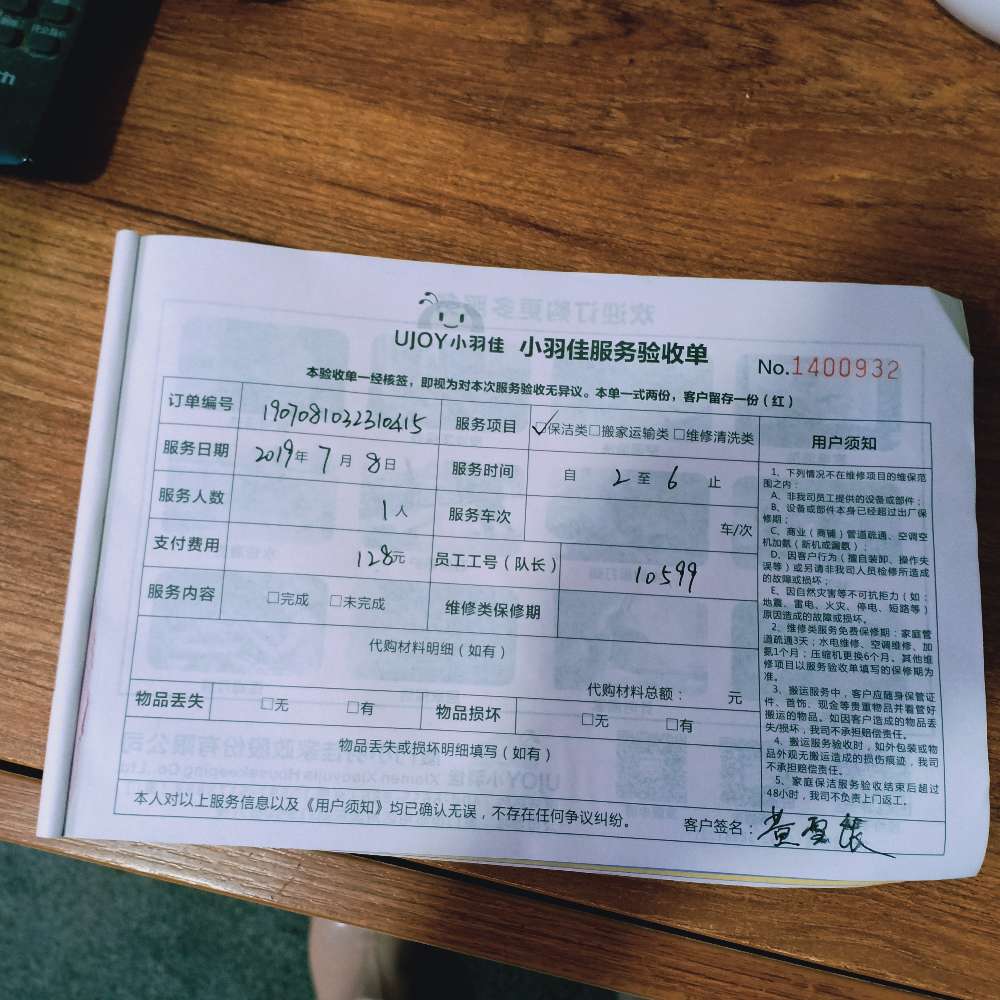 UJOY小羽佳 小羽佳服务验收单
No.1400932
本验收单一经核签，即视为对本次服务验收无异议。本单一式两份，客户留存一份（红）
订单编号 190708103231​0415 服务项目 ☑保洁类□搬家运输类□维修清洗类
服务日期 2019年7月8日 服务时间 自 2 至 6 止
服务人数 1人 服务车次 车/次
支付费用 128元 员工工号（队长） 10599
服务内容 □完成 □未完成 维修类保修期
代购材料明细（如有）
代购材料总额： 元
物品丢失 □无 □有 物品损坏 □无 □有
物品丢失或损坏明细填写（如有）
本人对以上服务信息以及《用户须知》均已确认无误，不存在任何争议纠纷。
客户签名：黄
用户须知
1、下列情况不在维修项目的维保范
围之内：
A、非我司员工提供的设备或部件；
B、设备或部件本身已经超过出厂保
修期；
C、商业（商铺）管道疏通、空调空
机加氨（新机或漏氨）；
D、因客户行为（擅自装卸、操作失
误等）或另请非我司人员检修所造成
的故障或损坏；
E、因自然灾害等不可抗拒力（如：
地震、雷电、火灾、停电、短路等）
原因造成的故障或损坏。
2、维修类服务免费保修期：家庭管
道疏通3天；水电维修、空调维修、加
氨1个月；压缩机更换6个月。其他维
修项目以服务验收单填写的保修期为
准。
3、搬运服务中，客户应随身保管证
件、首饰、现金等贵重物品并看管好
搬运的物品。如因客户造成的物品丢
失/损坏，我司不承担赔偿责任。
4、搬运服务验收时，如外包装或物
品外观无搬运造成的损伤痕迹，我司
不承担赔偿责任。
5、家庭保洁服务验收结束后超过
48小时，我司不负责上门返工。